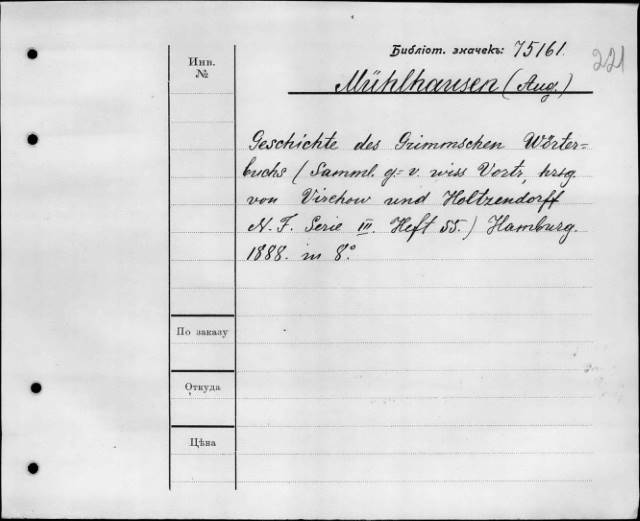 Библіот. значекъ: 75161.
221
Инв.
№
Mühlhausen (Aug.)
Geschichte des Grimmschen Wörter=
buchs (Samml. g.-v. wiss Vortr, hrsg
von Virchow und Holtzendorff
N. F. Serie III. Heft 55.) Hamburg.
1888. in 8°.
По заказу
Откуда
Цѣна